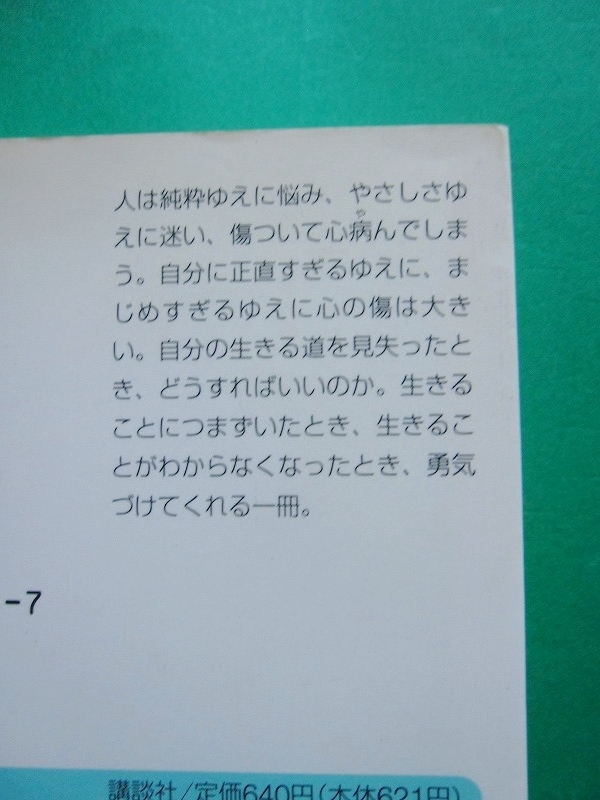 人は純粋ゆえに悩み、やさしさゆ
えに迷い、傷ついて心病んでしま
う。自分に正直すぎるゆえに、ま
じめすぎるゆえに心の傷は大き
い。自分の生きる道を見失ったと
き、どうすればいいのか。生きる
ことにつまずいたとき、生きるこ
とがわからなくなったとき、勇気
づけてくれる一冊。
-7
講談社/定価640円(本体621円)